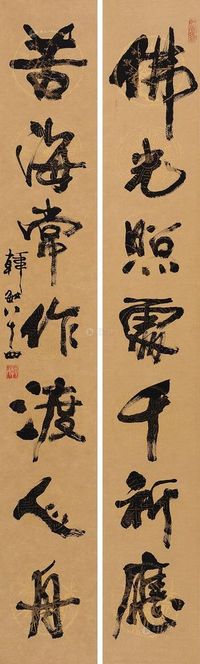 佛光照處千祈應
苦海常作渡人舟
韓敏八十四